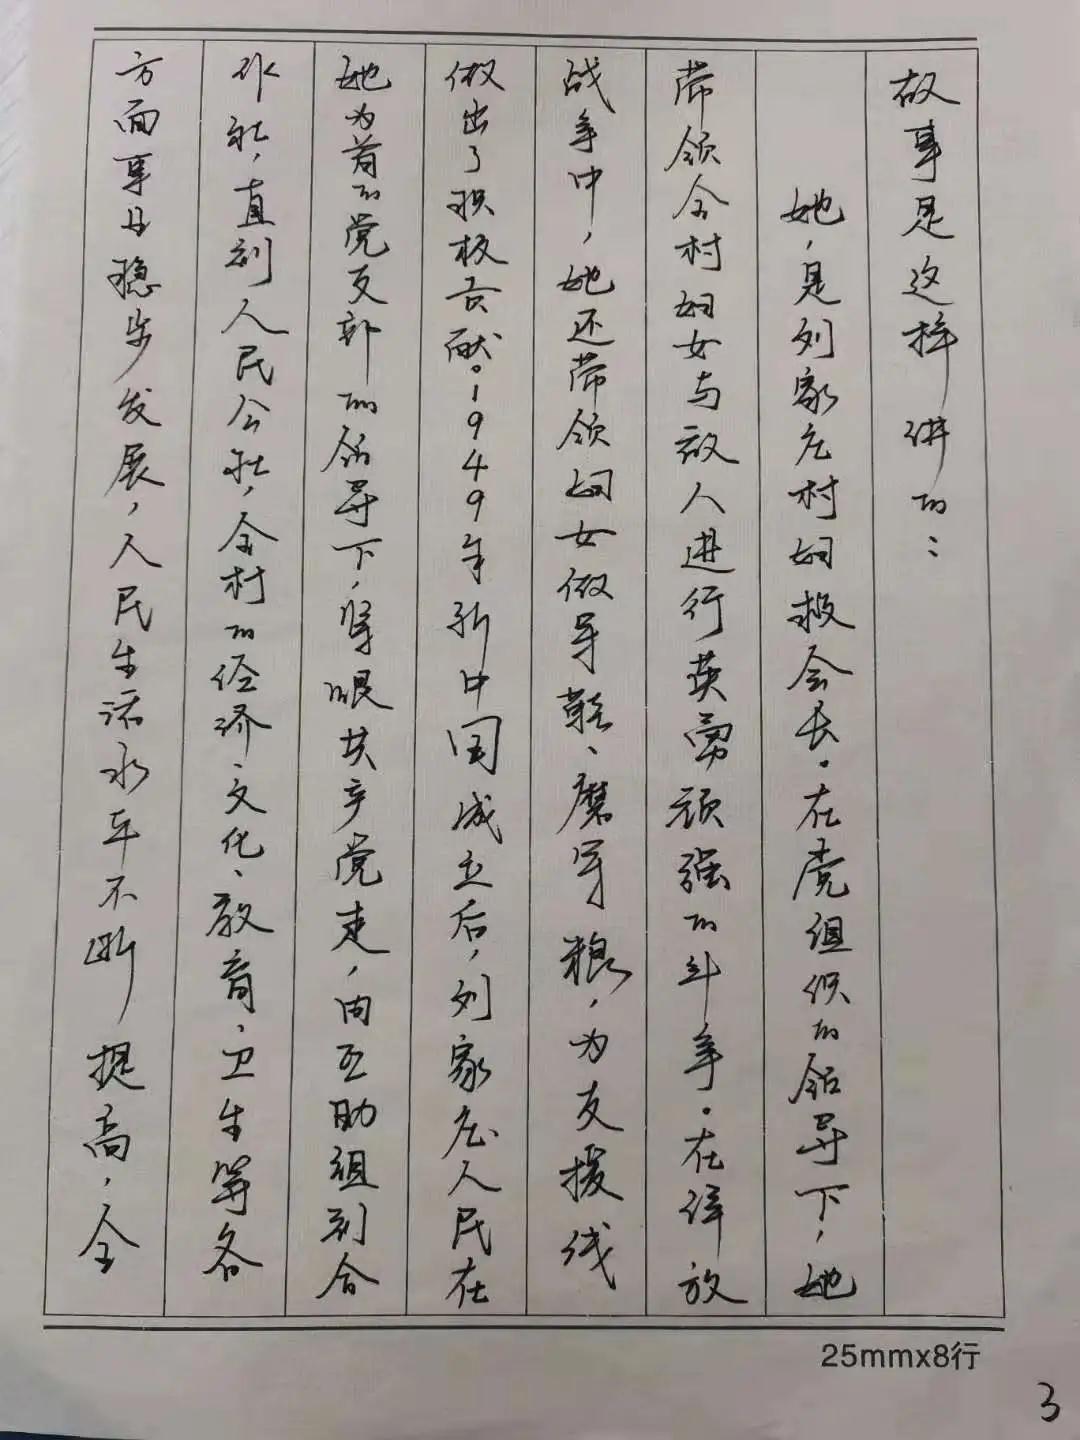 故事是这样讲的：
她，是列家庄村妇救会长。在党组织的领导下，她
带领全村妇女与敌人进行英勇顽强的斗争。在解放
战争中，她还带领妇女做军鞋、磨军粮，为支援前线
做出了积极贡献。1949年新中国成立后，列家庄人民在
她为首的党支部的领导下，紧跟共产党走，由互助组到合
作社，直到人民公社，全村的经济、文化、教育、卫生等各
方面事业稳步发展，人民生活水平不断提高，全
25mmx8行
3